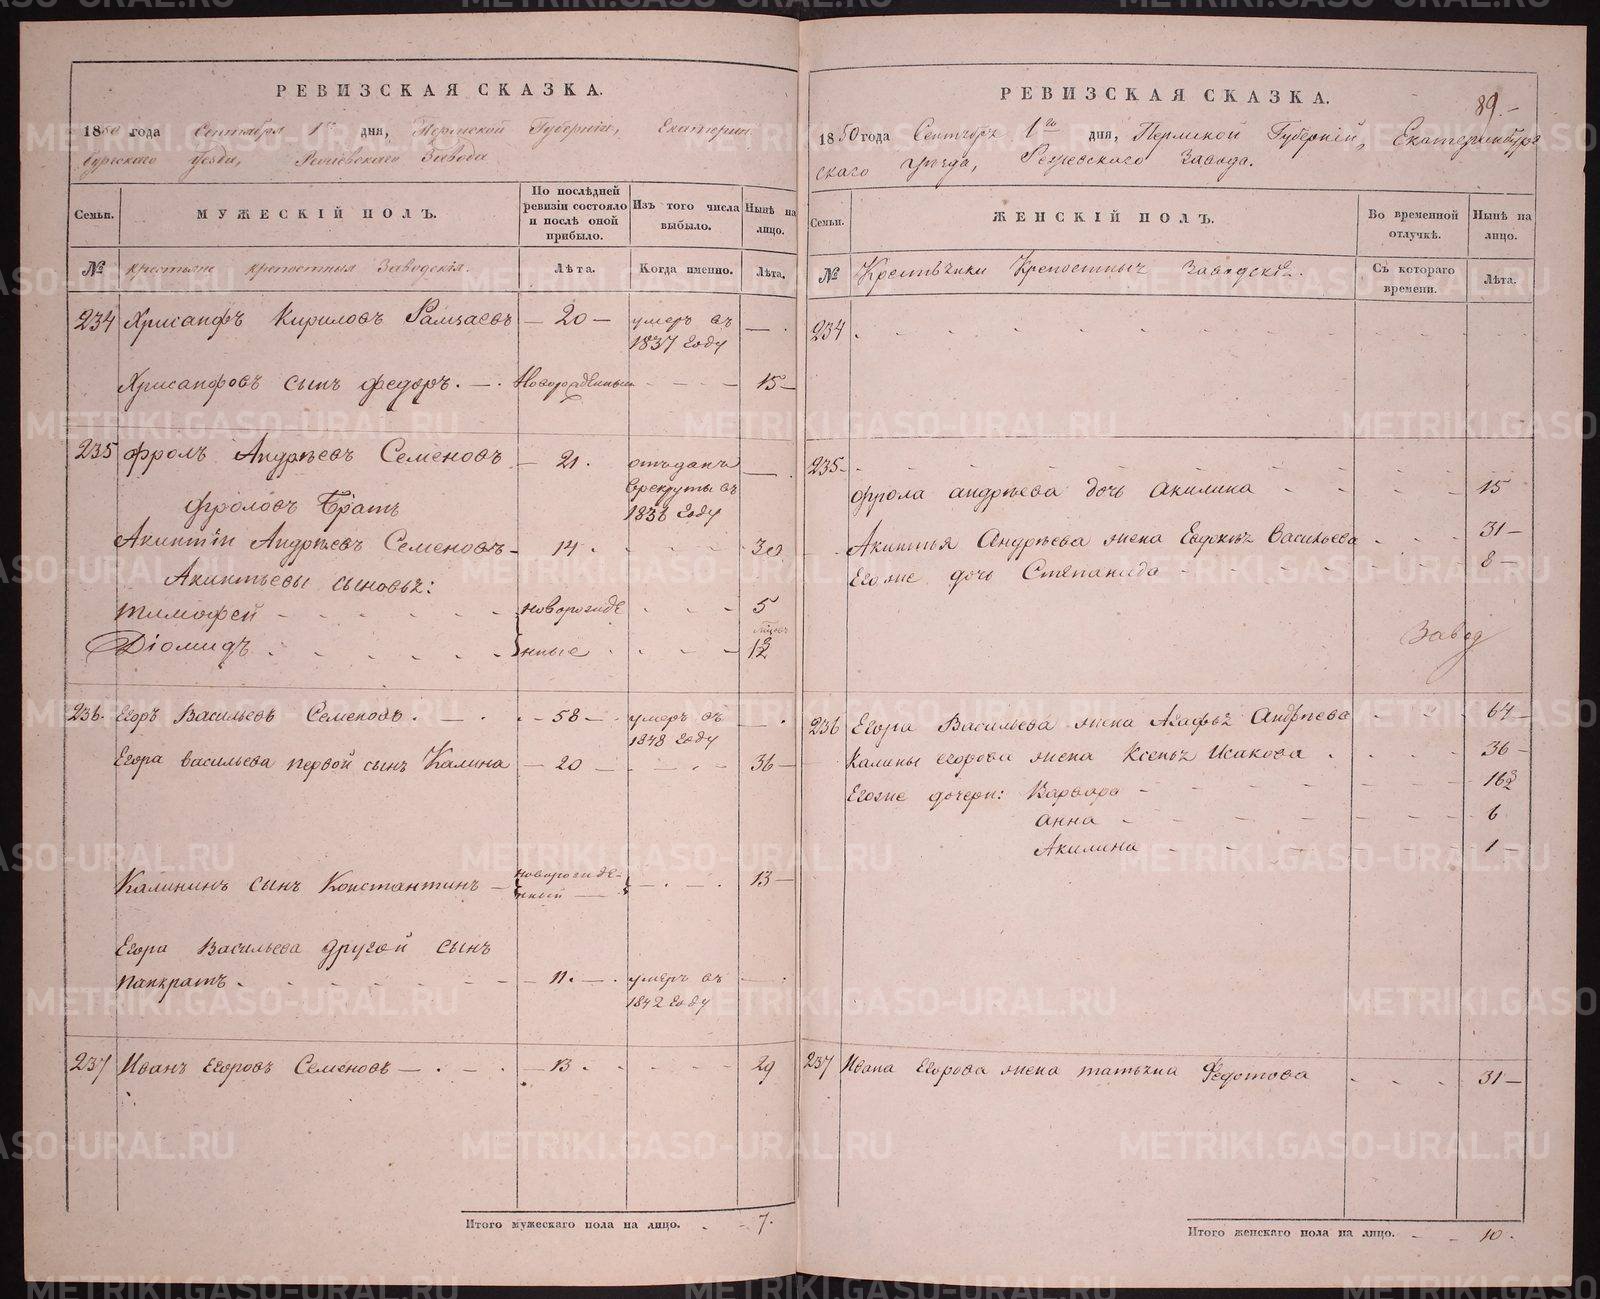 РЕВИЗСКАЯ СКАЗКА.
1850 года Сентября 1го дня, Пермской Губернии, Екатерин
бургского уезда, Режевского Завода
Семьи.
МУЖЕСКІЙ ПОЛЪ.
По послѣдней ревизіи состояло и послѣ оной прибыло.
Изъ того числа выбыло.
Нынѣ на лицо.
№
крестьяне крепостныя Заводскія.
Лѣта.
Когда именно.
Лѣта.
234 Хрисанфъ Кириловъ — 20 — умеръ въ — .
1837 году
Хрисанфовъ сынъ Федоръ. — . Новорожденный - - - - 15 —
235 Фролъ Андреевъ Семеновъ — 21. отъданъ —
Фроловъ Братъ
в рекруты въ
1836 году
Акинтiи Андреевъ Семеновъ - 14 . - - - 30
Акинтьевы сыновья:
Тимофей - - - - - - новорожде - - - 5
Діомидъ - - - - - нные . - - - 1/2
236. Егоръ Васильевъ Семеновъ . — . — 58 — умеръ въ — .
1848 году
Егора Васильева первой сынъ Калина — 20 — - - - 36 —
Калининъ сынъ Константинъ — новорожде-
нный — . — . 13 —
Егора Васильева другой сынъ
Панкратъ . - - - - - 11. — . умеръ въ — .
1842 году
237 Иванъ Егоровъ Семеновъ — . — . — 13 . - - - 29
Итого мужескаго пола на лицо. - - 7.
РЕВИЗСКАЯ СКАЗКА.
89.-
1850 года Сентября 1го дня, Пермской Губернiй, Екатеринбург
скаго уезда, Режевского Завода.
Семьи.
ЖЕНСКІЙ ПОЛЪ.
Во временной отлучкѣ.
Нынѣ на лицо.
№
Крестьянки Крепостныя Заводскіе.
Съ котораго времени.
Лѣта.
234 . - - - - - - -
235 - - - - - - -
Фрола андреева дочь Акилина - - - - 15
Акинтья Андреева жена Евдокья Васильева - - - 31 —
Егоже дочь Степанида - - - - - - 8 —
Завод
236 Егора Васильева жена Агафья Андреева - - - 64 —
Калины егорова жена Ксенья Исакова . - - - 36 —
Егоже дочери: Варвара - - - - - 16 1/2
Анна - - - - - - 6
Акилина - - - - - - 1 —
237 Ивана Егорова жена татьяна Федотова - - - 31 —
Итого женскаго пола на лицо. - - 10.
METRIKI.GASO-URAL.RU